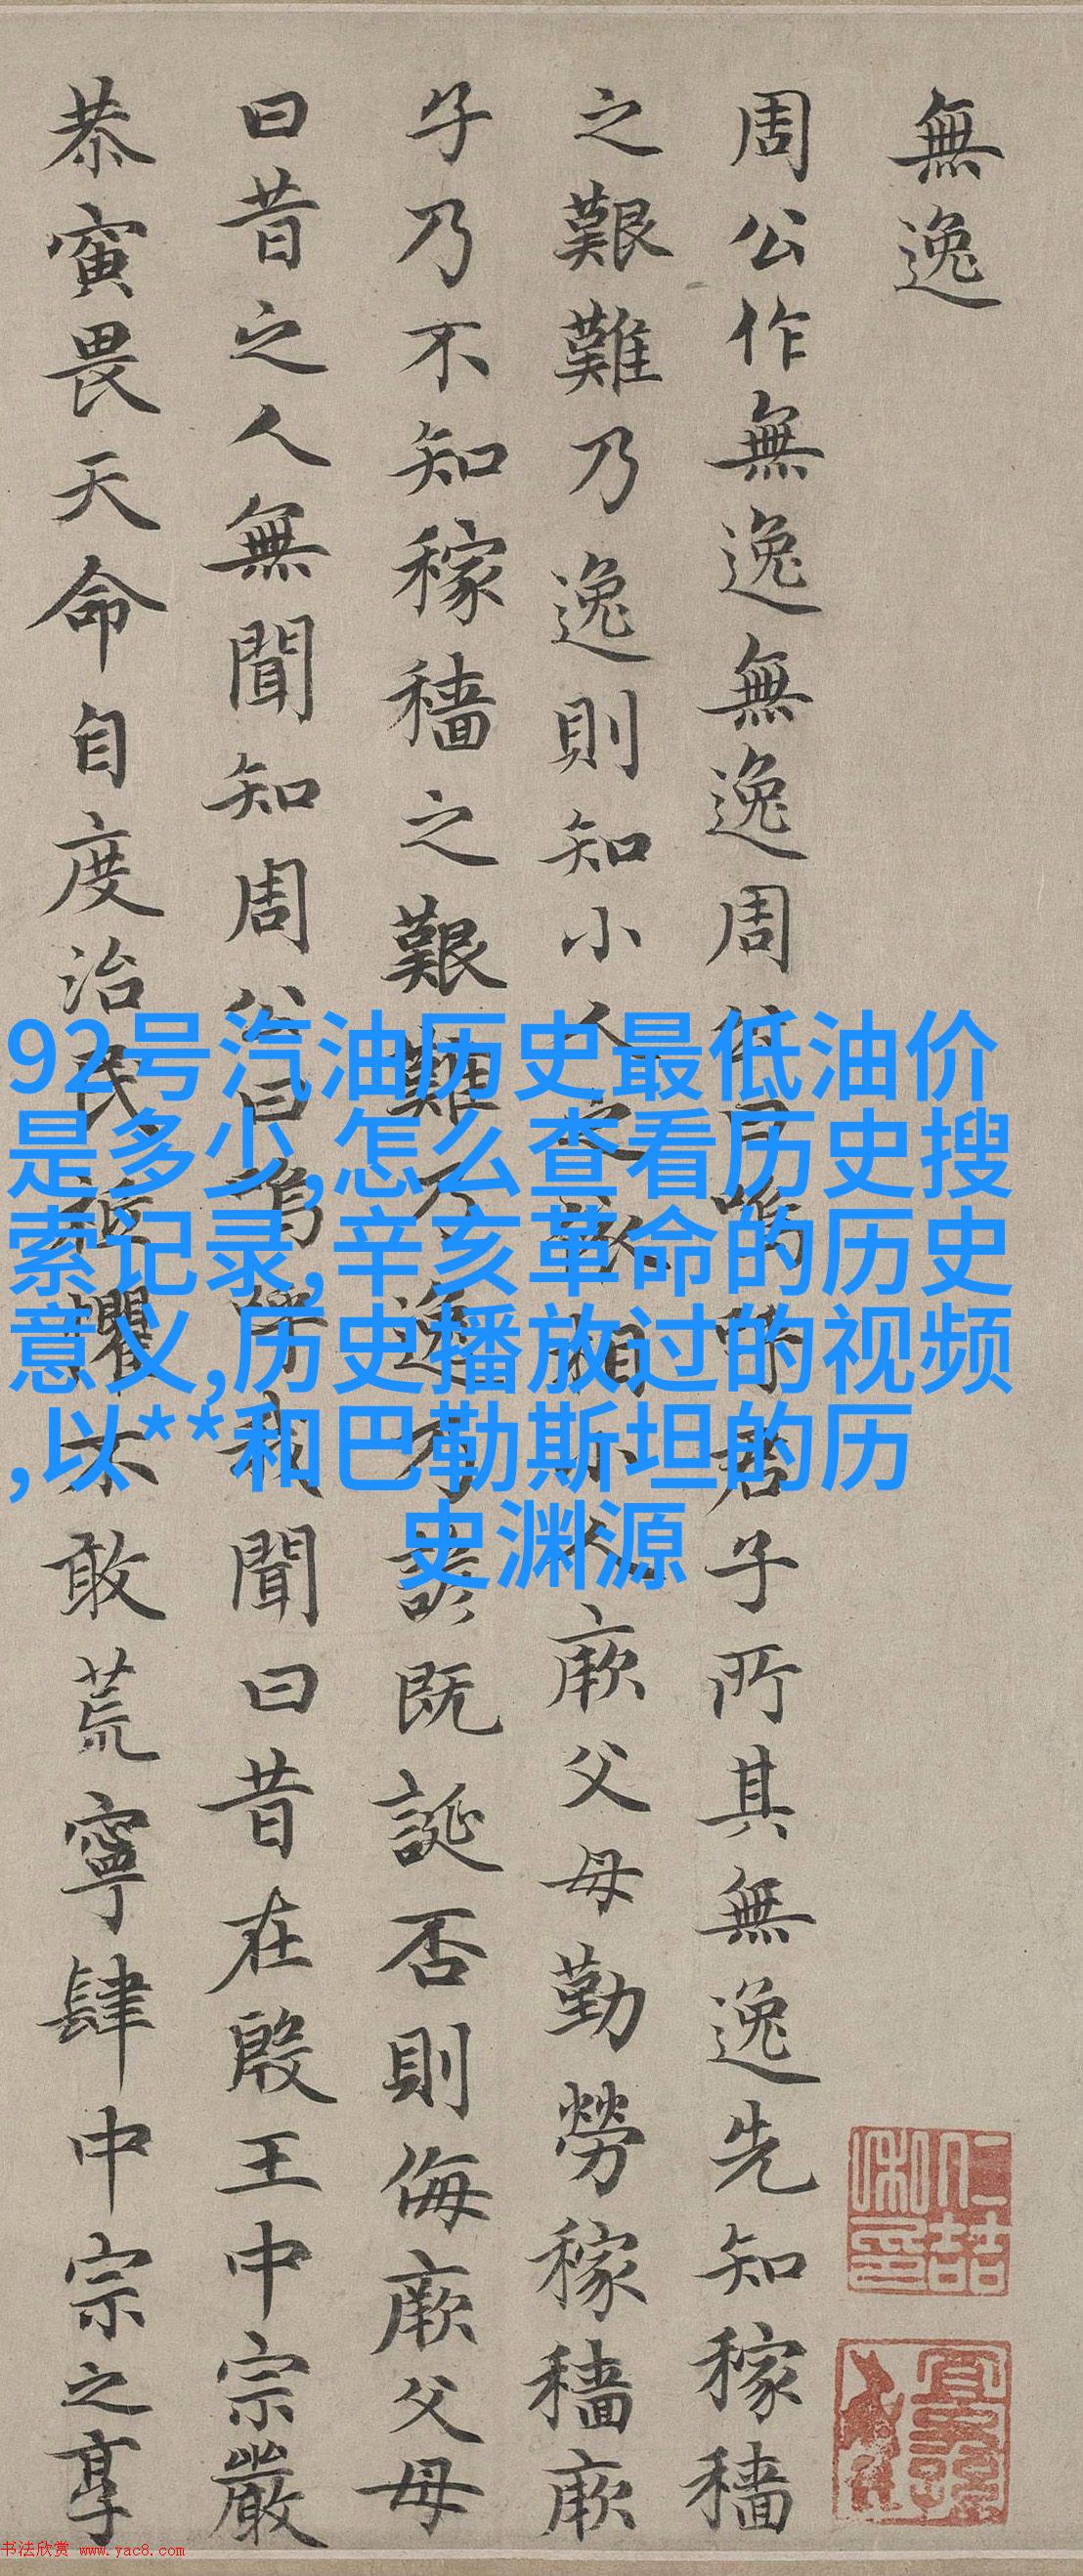 無逸
周公作無逸無逸周公曰嗚呼君子所其無逸先知稼穡
之艱難乃逸則知小人之依相小人厥父母勤勞稼穡厥
子乃不知稼穡之艱難乃逸乃諺既誕否則侮厥父母
曰昔之人無聞知周公曰嗚呼我聞曰昔在殷王中宗嚴
恭寅畏天命自度治民祗懼不敢荒寧肆中宗之享
92号汽油历史最低油价
是多少,怎么查看历史搜
索记录,辛亥革命的历史
意义,历史播放过的视频
,以**和巴勒斯坦的历
史渊源
书法欣赏 www.yac8.com